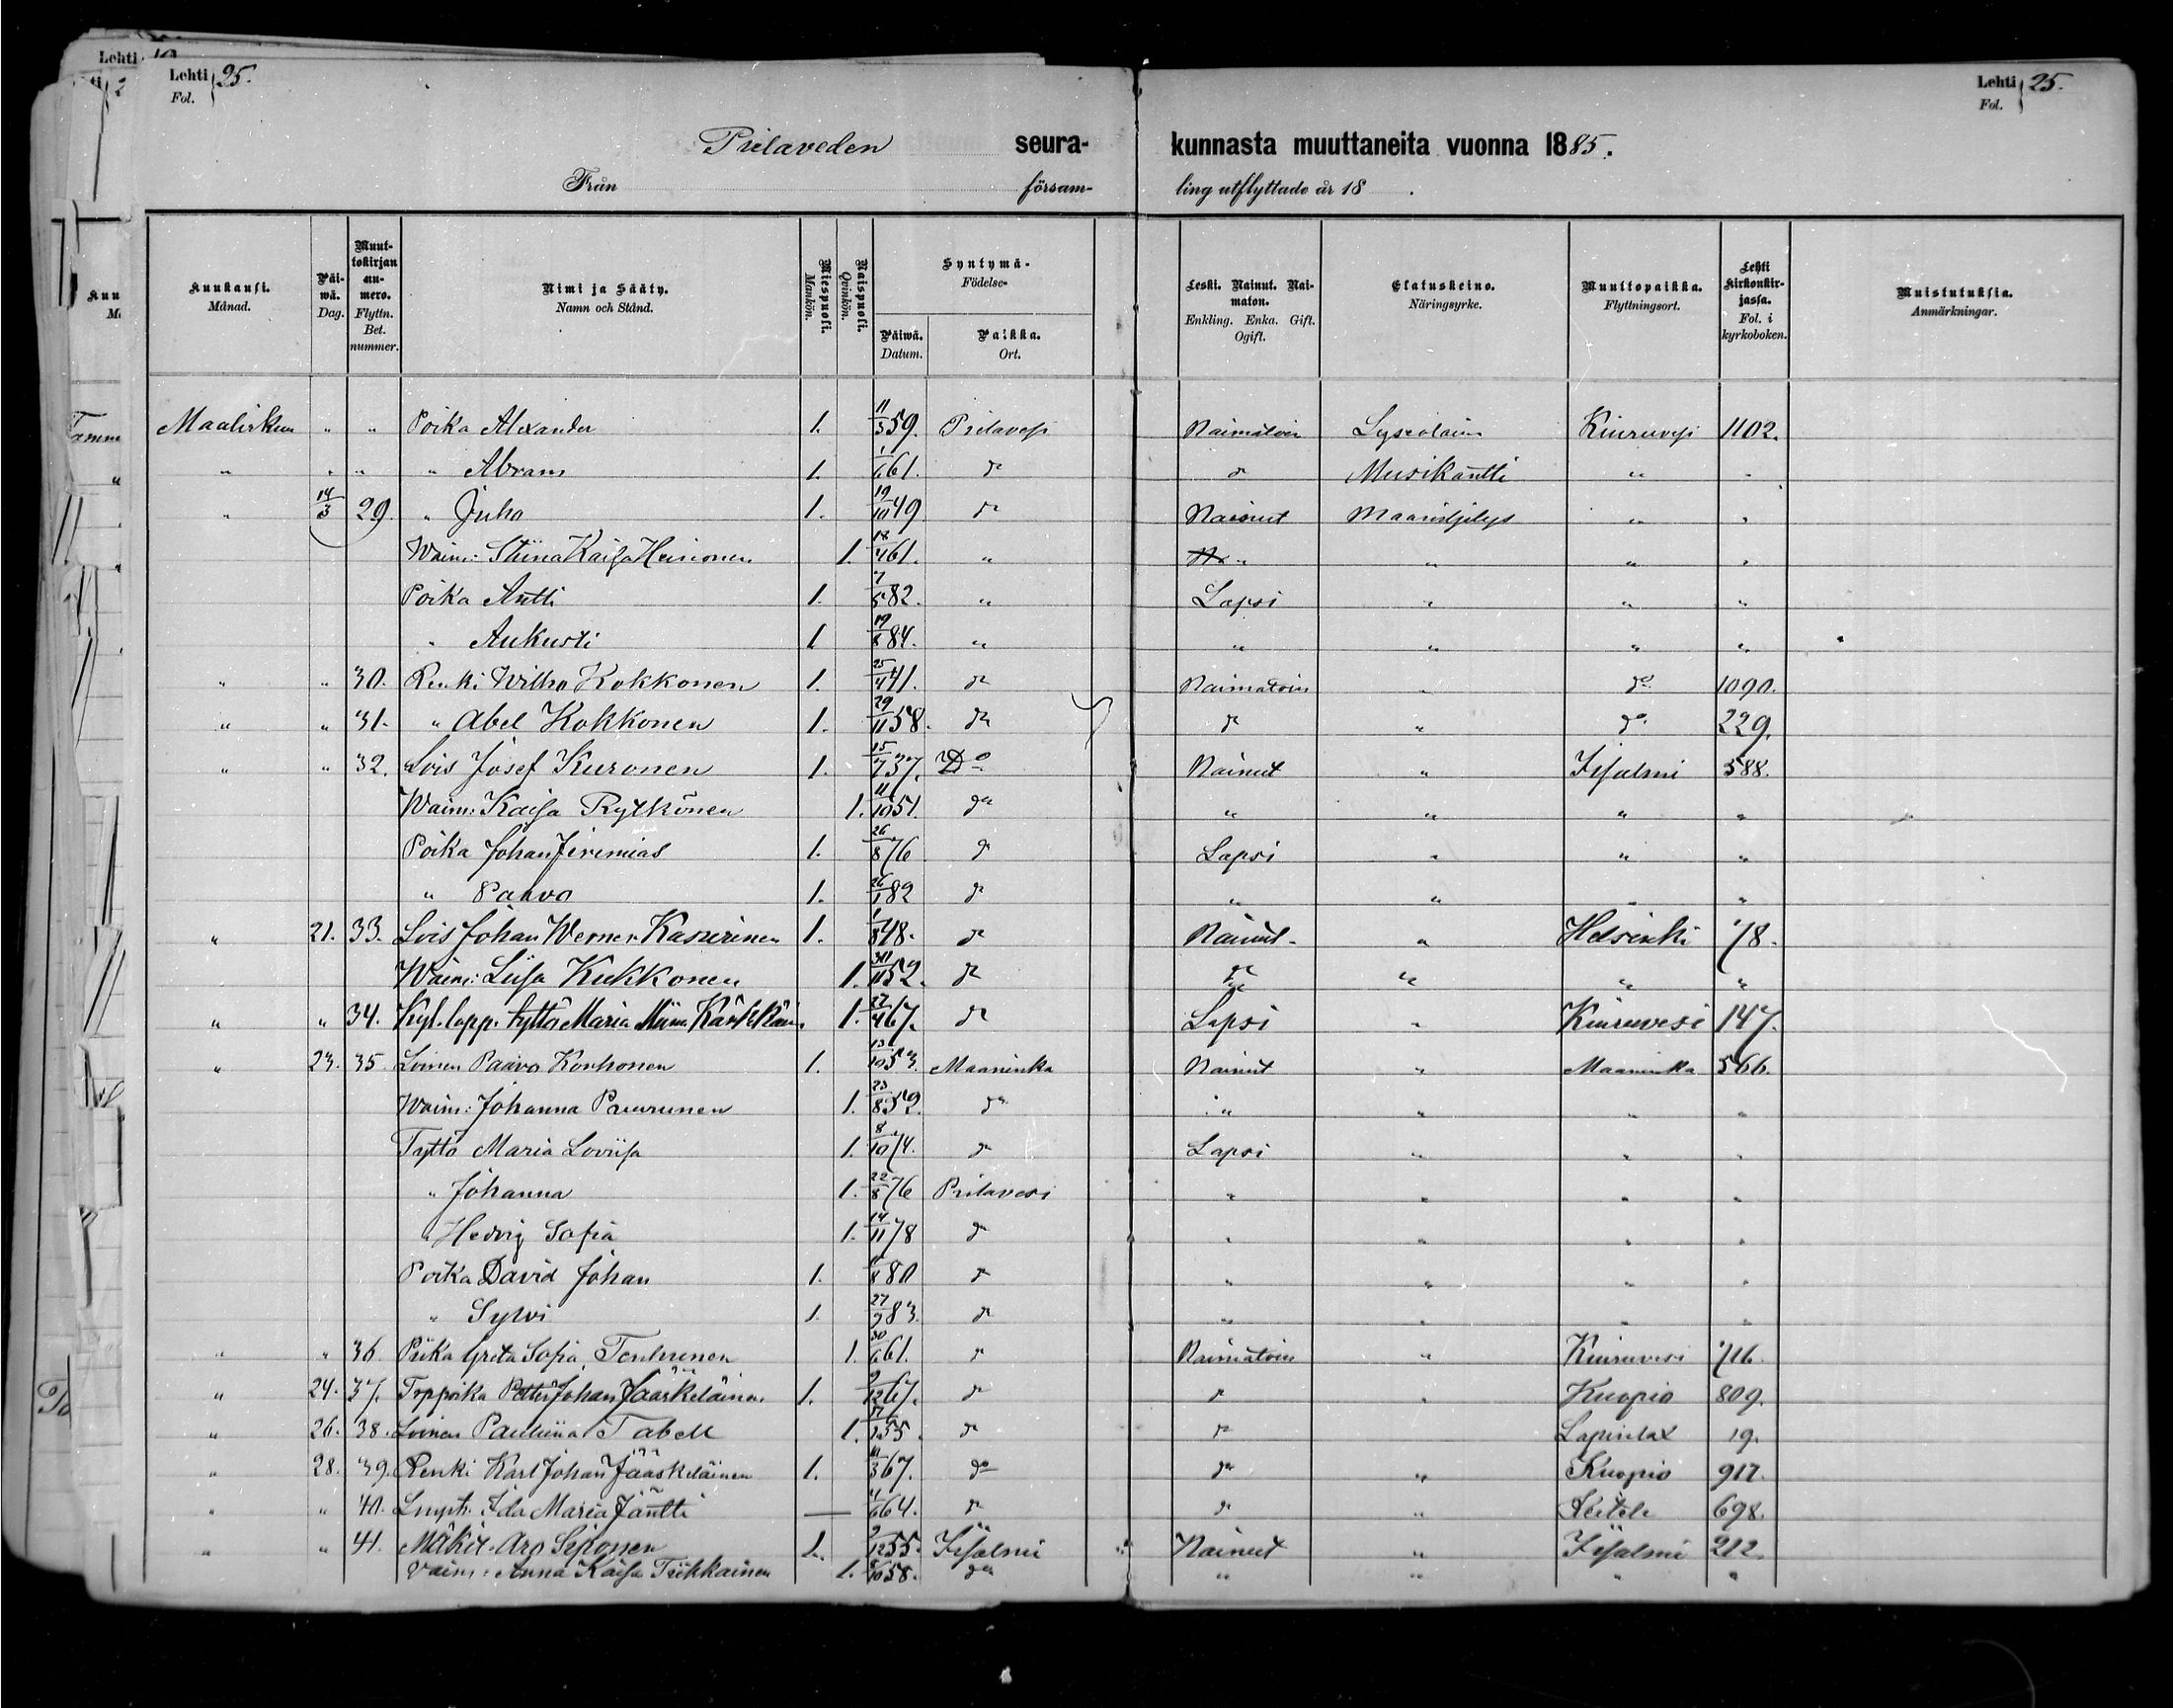 Lehti
Lehti Fol. 25.
Lehti Fol. 25.
Pielaveden seura- kunnasta muuttaneita vuonna 1885.
Från försam- ling utflyttade år 18 .
Kuukausi. Månad. Päi-wä. Dag. Muut-tokirjan nu-mero. Flyttn. Bet. nummer. Nimi ja Sääty. Namn och Stånd. Miespuoli. Mankön. Naispuoli. Qvinkön. Syntymä- Födelse- Päiwä. Datum. Paikka. Ort. Leski. Nainut. Nai-maton. Enkling. Enka. Gift. Ogift. Elatuskeino. Näringsyrke. Muuttopaikka. Flyttningsort. Lehti Kirkonkir-jassa. Fol. i kyrkoboken. Muistutuksia. Anmärkningar.
Maalisku " " Poika Alexander 1. 11/3 59. Pielavesi Naimatoin Kiuruvesi 1102.
" " " " Abram 1. 1/6 61. do do Musikantti " "
" 14/3 29. " Juho 1. 19/10 49 do Nainut Maanviljelys " "
Waim: Stiina Kaisa Heinonen 1. 18/4 61. " " " " "
Poika Antti 1. 7/5 82. " Lapsi " " "
" Aukusti 1 19/8 84. " " " " "
" " 30. Renki Wilho Kokkonen 1. 25/4 41. do Naimatoin " do 1090.
" " 31. " Abel Kokkonen 1. 29/11 58. do do " do 229.
" " 32. Lois Josef Kuronen 1. 15/7 37. Do Nainut " Iisalmi 588.
Waim: Kaisa Rytkönen 1. 11/10 51. do " " " "
Poika Johan Jeremias 1. 26/8 76 do Lapsi " " "
" Paavo 1. 26/1 82 do " " " "
" 21. 33. Lois Johan Werner Kasurinen 1. 1/8 48. do Nainut " Helsinki 78.
Waim: Liisa Kukkonen 1. 30/11 52. do do " " "
" " 34. tyttö Maria Miina 1. 27/4 67. do Lapsi " Kiuruvesi 147.
" 23. 35. Loinen Paavo Korhonen 1. 13/10 53. Maaninka Nainut " Maaninka 566.
Waim: Johanna Puurunen 1. 23/8 52. do " " " "
Tyttö Maria Loviisa 1. 8/10 74. do Lapsi " " "
" Johanna 1. 22/8 76 Pielavesi " " " "
" Hedvig Sofia 1. 14/11 78 do " " " "
Poika David Johan 1. 80 do " " " "
" Sylvi 1. 27/9 83. do " " " "
" " 36. Piika Greta Sofia Tenhunen 1. 30/6 61. do Naimatoin " Kiuruvesi 716.
" 24. 37. Petter Johan Jääskeläinen 1. 9/12 67. do do " Kuopio 809.
" 26. 38. Loinen Pauliina Tabell 1. 55. do do 19.
" 28. 39. Renki Karl Johan Jääskeläinen 1. 11/3 67. do do " Kuopio 917.
" " 40. Ida Maria Jäntti — 4/6 64. do do " Keitele 698.
" " 41. Mäkit. Aro Seponen 1. 9/12 55. Iisalmi Nainut " Iisalmi 212.
Vaim: Anna Kaisa Tiikkainen 1. 5/10 58. do " " " "